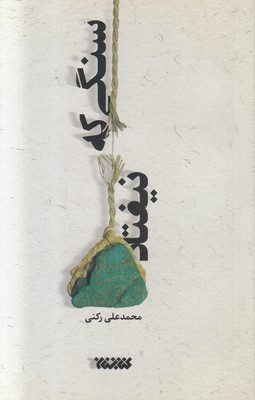 سنگی که
نیفتاد
محمدعلی رکنی
کتابستان